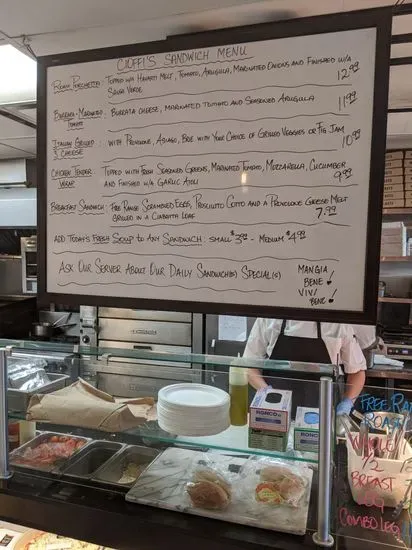 CIOFFI'S SANDWICH MENU
ROAST PORCHETTA: TOPPED W/A HAVARTI MELT, TOMATO, ARUGULA, MARINATED ONIONS AND FINISHED W/A
SALSA VERDE 12.99
BURRATA - MARINATED BURRATA CHEESE, MARINATED TOMATO AND SEASONED ARUGULA 11.99
TOMATO
ITALIAN GRILLED WITH PROVOLONE, ASIAGO, BRIE WITH YOUR CHOICE OF GRILLED VEGGIES OR FIG JAM
& CHEESE 10.99
CHICKEN TENDER TOPPED WITH FRESH SEASONED GREENS, MARINATED TOMATO, MOZZARELLA, CUCUMBER
WRAP AND FINISHED W/A GARLIC AIOLI 9.99
BREAKFAST SANDWICH: FREE RANGE SCRAMBLED EGGS, PROSCIUTTO COTTO AND A PROVOLONE CHEESE MELT
GRILLED IN A CIABATTA LOAF 7.99
ADD TODAY'S FRESH SOUP TO ANY SANDWICH: SMALL $3.99 - MEDIUM $4.99
ASK OUR SERVER ABOUT OUR DAILY SANDWICH(S) SPECIAL(S)
MANGIA
BENE!
VIVI
BENE!
RONCO
RONCO
FREE RA
ROAST
WHOLE
1/2
BREAST
LEG
COMBO LEG